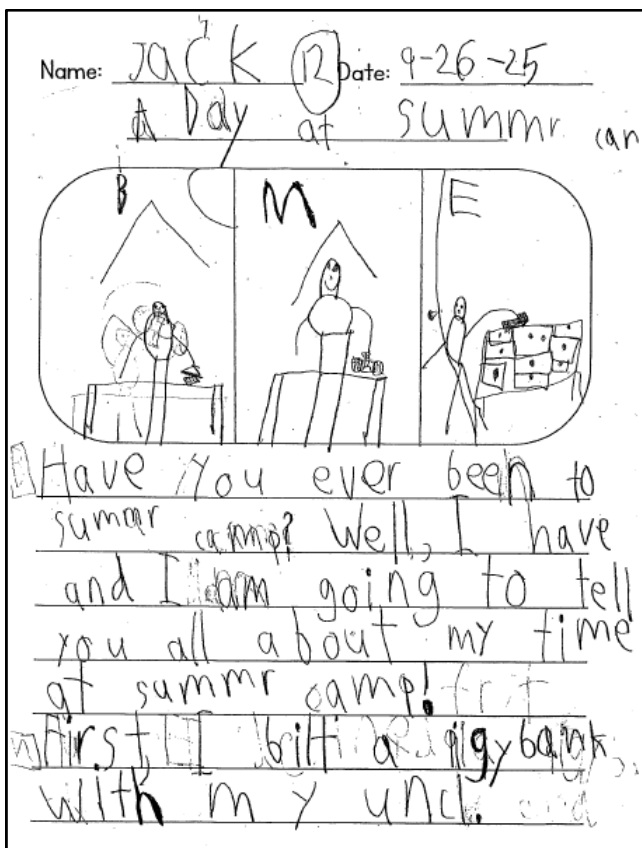 Name: Jack 12 Date: 9-26-25
A Day at summr can
B M E
Have you ever been to
sumar camp? Well, I have
and I am going to tell
you all about my time
at summr camp!
First, I bilt a pigybank
with my uncl.